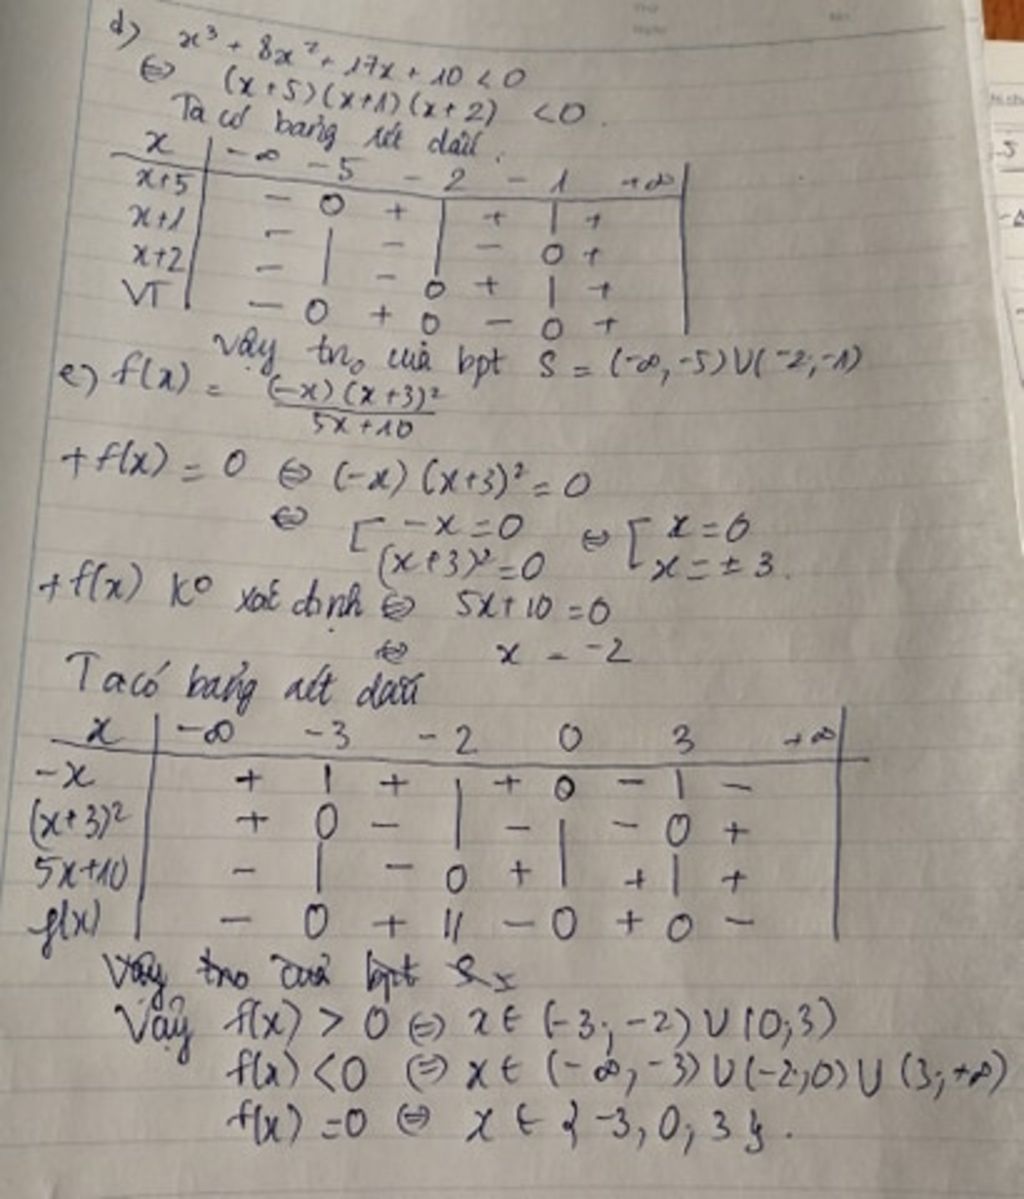 d) x³ + 8x² + 17x + 10 < 0
⇔ (x+5)(x+1)(x+2) < 0.
Ta có bảng xét dấu.
x | -∞ -5 -2 -1 +∞
x+5 | - 0 + | + | +
x+1 | - | - | - 0 +
x+2 | - | - 0 + | +
VT | - 0 + 0 - 0 +
Vậy tno của bpt S = (-∞,-5)∪(-2;-1)
e) f(x) = (-x)(x+3)²
5x+10
+ f(x) = 0 ⇔ (-x)(x+3)² = 0
⇔ [ -x = 0 ⇔ [ x = 0
(x+3)² = 0 x = ± 3.
+ f(x) ko xác định ⇔ 5x+10 = 0
⇔ x = -2
Ta có bảng xét dấu
x | -∞ -3 -2 0 3 +∞
-x | + | + | + 0 - | -
(x+3)² | + 0 - | - | - 0 +
5x+10 | - | - 0 + | + | +
f(x) | - 0 + || - 0 + 0 -
Vậy tno của bpt
Vậy f(x) > 0 ⇔ x ∈ (-3;-2) ∪ (0;3)
f(x) < 0 ⇔ x ∈ (-∞,-3) ∪ (-2;0) ∪ (3;+∞)
f(x) = 0 ⇔ x ∈ {-3, 0, 3}.